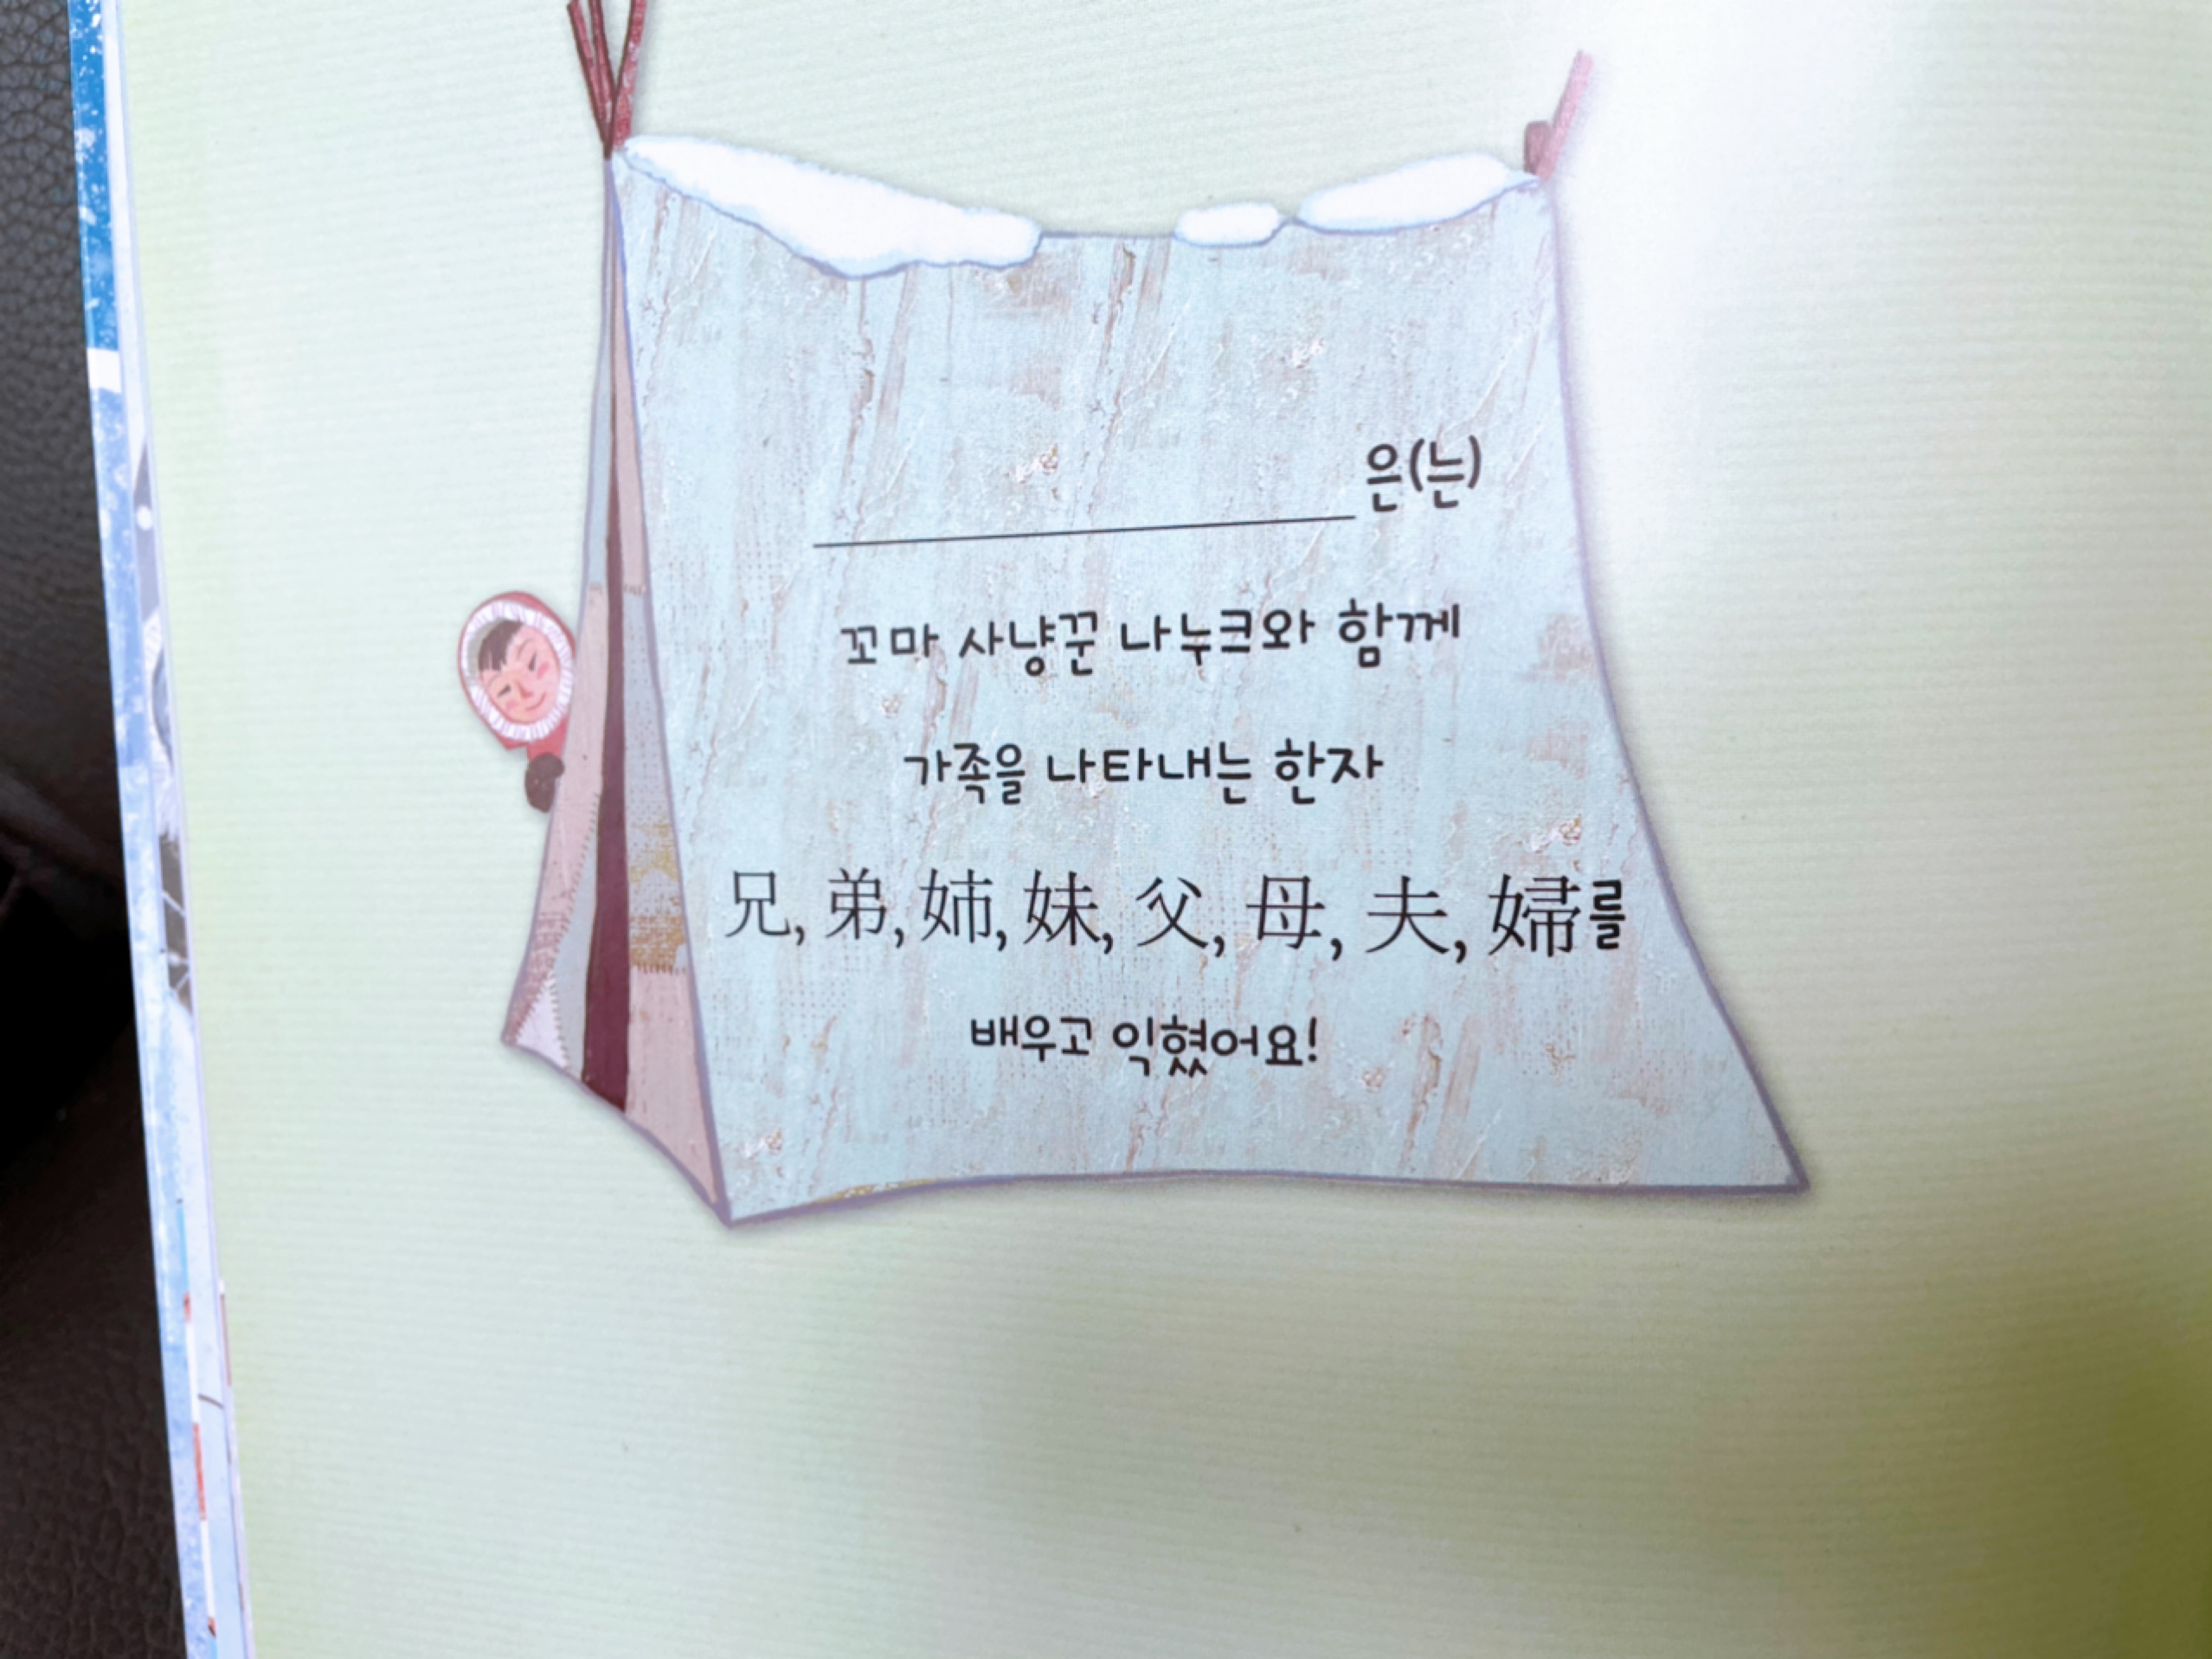 은(는)
꼬마 사냥꾼 나누크와 함께
가족을 나타내는 한자
兄, 弟, 姉, 妹, 父, 母, 夫, 婦를
배우고 익혔어요!